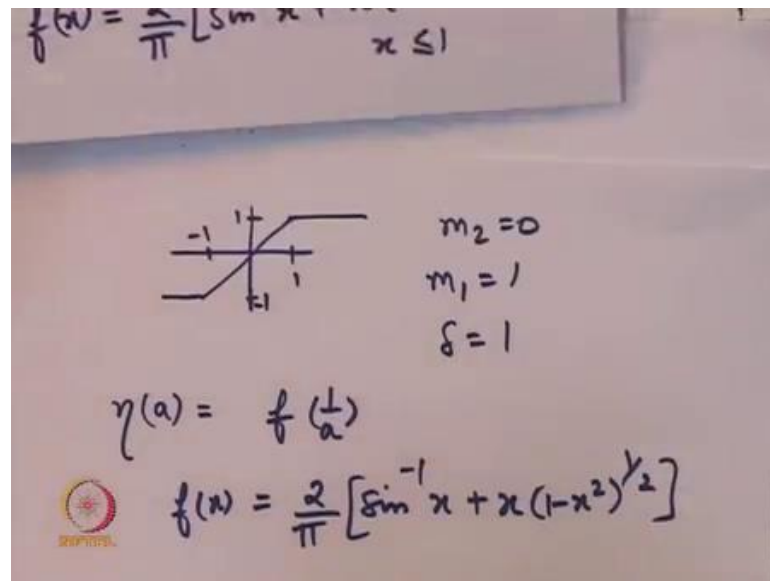 f(x) = 2/π [sin x
x ≤ 1
1
-1
1
-1
m₂ = 0
m₁ = 1
δ = 1
η(a) = f(1/a)
f(x) = 2/π [sin⁻¹ x + x(1-x²)^{1/2}]